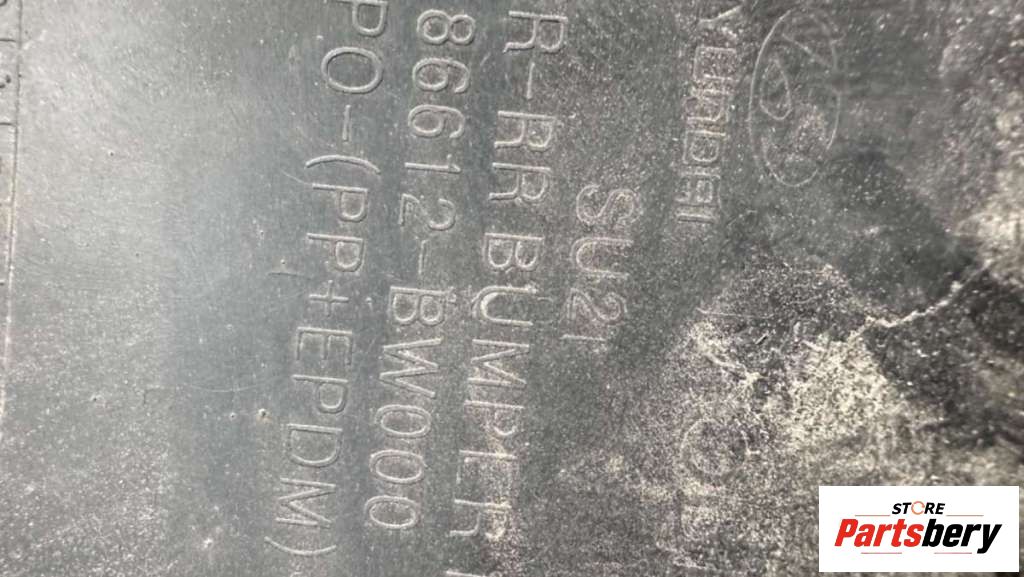 YUNDAI
SU2I
R-RR BUMPER
86612-BW000
PO-(PP+EPDM)
STORE
Partsbery